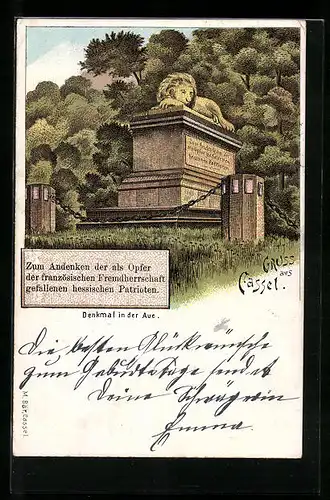 Gruss
aus
Cassel.
Zum Andenken der als Opfer
der französischen Fremdherrschaft
gefallenen hessischen Patrioten.
Denkmal in der Aue.
Die besten Glückwünsche
zum Geburtstage sendet
Deine Schwägerin
Emma